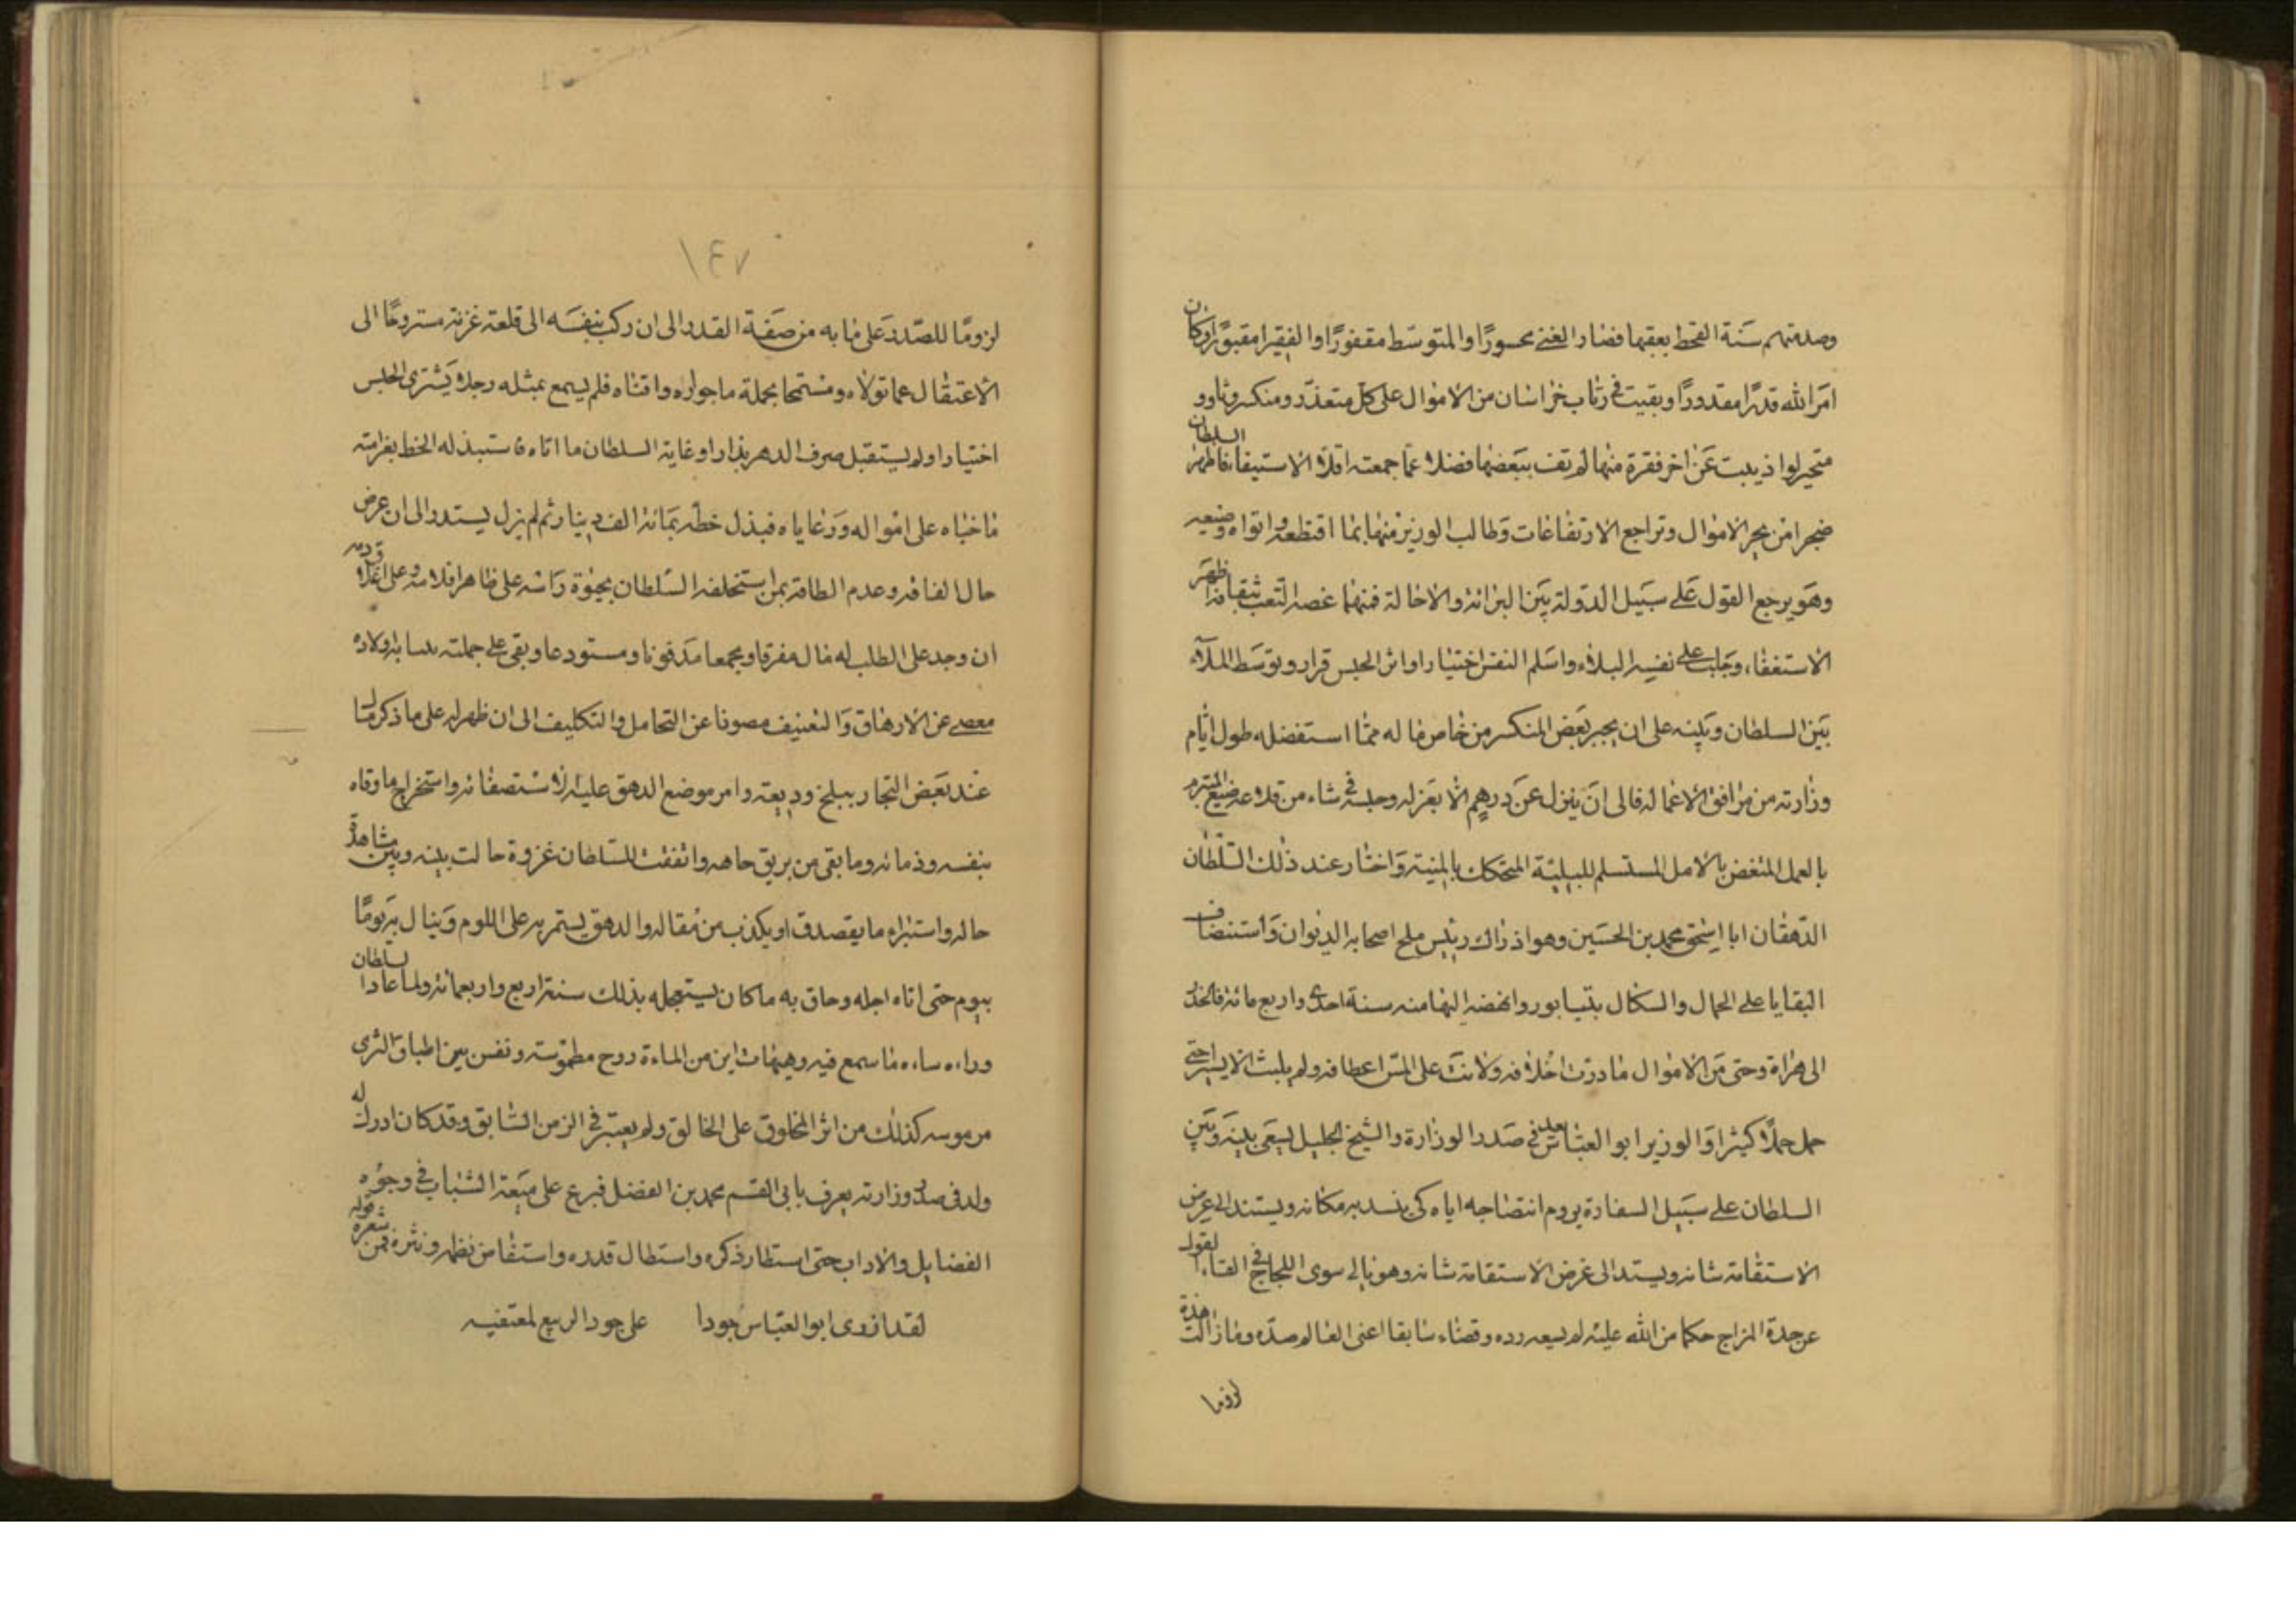 وصدمتهم سَنة القحط بعقبها فصار الغني محسورًا والمتوسّط مقفورًا والفقير مقبورًا وكان
امَر الله قدرًا مقدورًا وبقيت في رقاب خراسان من الاموال على كل متعذّر ومنكسر وثاوو
متحير لواذيبت عَن اخر فقرة منها لم تف ببَعضها فضلا عمّا جمعته اقلام الاستيفاء فاظهر السلطان
ضجرا من مجر الاموال وتراجع الارتفاعات وَطالب الوزير منها بما اقتطعه واتواه وضيعه
وهَو يرجع القول عَلى سبَيل الدّولة بيَن البرائة والاحالة فمنهما غصه التعب ثيقافه اظهَر
الاستعفاء، وجَلب على نفسه البلاء واسَلم النفس اختيارا واثر الحبس قرارا وتوسَط الملأ
بيَن السلطان وبَينه على ان يجبر بعَض المنكسر من خاص ماله ممّا استفضله طول ايّام
وزارته من مرافق الاعماله فابى ان ينزل عَن درهم الا بعَزله وحبسه في شاء من قلاعه صنيع المتبرم
بالعمل المنغض بالامل المستسلم للبليّة المتحكك بالمنية وَاختار عند ذلك السّلطان
الدّهقان ابا اسحٰق محمد بن الحسَين وهو اذ ذاك رئيس بلخ اصحابه الديوان وَاستنضاف
البقايا على الحمال والسكال بنيسابور وانهضه اليها منه سنة احدى واربع مائة فانحدر
الى هراة وحتى مَن الاموال مادرّت اخلافه ولانت على المسّ اعطافه ولم يلبث الا يسيرا حتى
حمل حملًا كثيرا وَالوزير ابو العبّاس بعد في صَدر الوزارة والشيخ الجليل يسعَى بينه وبَين
السلطان على سبَيل السفارة يروم انتضاحه اياه كى ينسد به مكانه ويستند الى عرض
الاستقامة شانه ويستد الى غرض الاستقامة شانه وهو يابى سوى اللجاج في القاء، لقوله
عن جدة المزاج حكما من الله عليه لم يسعه رده وقضاء سابقا اعنى العالم صدّه وما زالت هذه
لزوما
١٤٧
لزومًا للصّدر عَلى مابه من صَفة القدر الى ان ركب بنفسَه الى قلعة غزنة مستروحًا الى
الاعتقال عما تولاه ومستمحا بجملة ما حواره واقتناه فلم يسمع بمثله رجلا يَشترى الحبس
اختيارا ولم يستقبل صرف الدهر بدارا وغاية السلطان ما اتاه فاستبذله الخط بغرامته
ماخباه على امواله وَرعاياه فبذل خطّه بمَائة الف دينار ثم لم يزل يستدر الى ان عرض
حال الفاقه وعدم الطاقة بمن استخلفه السّلطان بحيٰوة رَاسه على ظاهر افلاسه وعلى اغلاه قدمه
ان وجد على الطلب له مال مفرقا ومجمعا مَدفونا ومستودعا وبقى على جملته بسايره ولاده
معصى عن الارهاق وَالتعنيف مصونا عن التحامل والتكليف الى ان ظهر له على ما ذكر مال
عند بعَض التجار ببلخ وديعة وامر موضع الدهق عليه لاستصفائه واستخراج ما وقاه
بنفسه وذمائه وما بقى من بريق جاهه واتفقت للسّلطان غزوة حالت بينه وبين مشاهدة
حاله واستبراء ما يقصد ق او يكذب من مقاله والدهق يستمر به على اللوم وَينال به يَومًا
بيوم حتى اتاه اجله وحاق به ما كان يستعجله بذلك سنة اربع واربعمائة ولما عاد السلطان
وراءه ساءه ما سمع فيه وهيهات اين من الماءة روح مطموسة ونفس بين اطباق الثرى
مرموسه كذلك من اثر المخلوق على الخالق ولم يعتبر في الزمن السّابق وقد كان ادرك له
ولد في صدر وزارته يعرف بابى القسم محمد بن الفضل فبرع على ميَعة الشباب في وجوه
الفضايل والاداب حتى استطار ذكره واستطال قدره واستفاض نظمه ونثره فمن شعره قوله
لقد ازرى ابو العبّاس جودا على جود الربيع لمعتفيه